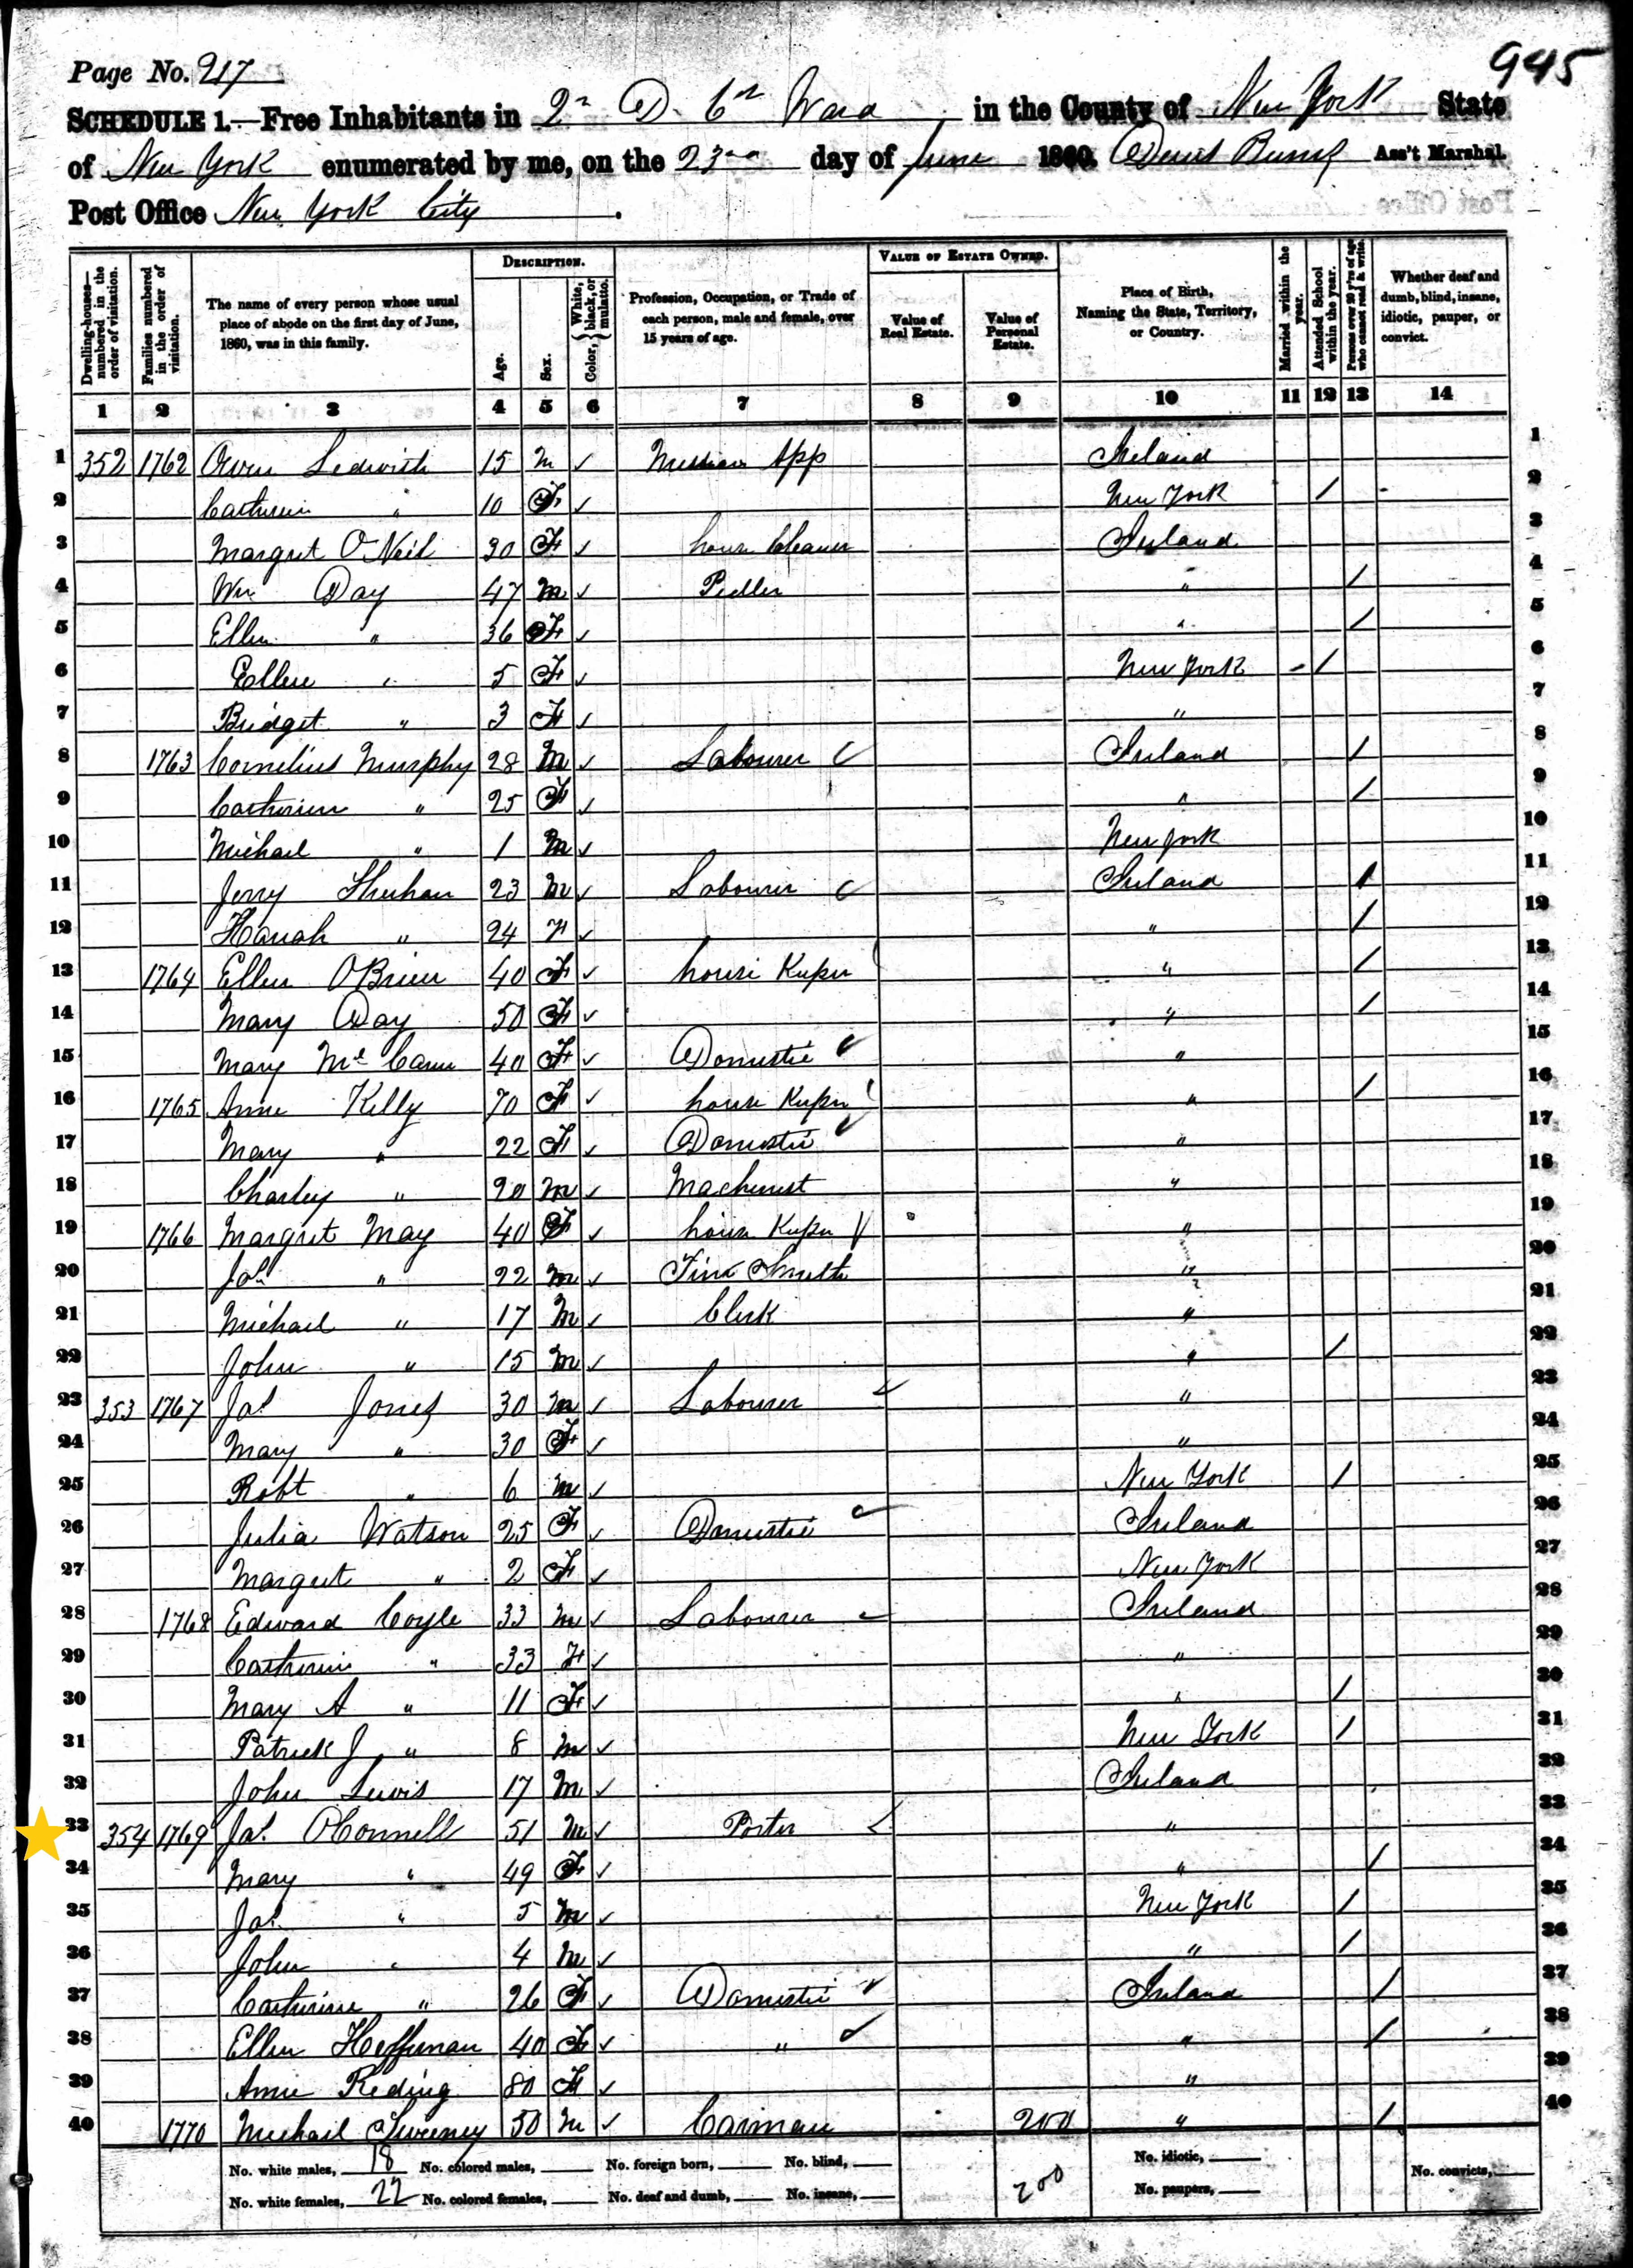 Page No. 217
945
SCHEDULE 1.—Free Inhabitants in 2n D. 6th Ward in the County of New York State
of New York enumerated by me, on the 23rd day of June 1860. Ass't Marshal.
Post Office New York City
Dwelling-houses—numbered in the order of visitation.
Families numbered in the order of visitation.
The name of every person whose usual place of abode on the first day of June, 1860, was in this family.
DESCRIPTION.
Age.
Sex.
Color, White, black, or mulatto.
Profession, Occupation, or Trade of each person, male and female, over 15 years of age.
VALUE OF ESTATE OWNED.
Value of Real Estate.
Value of Personal Estate.
Place of Birth, Naming the State, Territory, or Country.
Married within the year.
Attended School within the year.
Persons over 20 y'rs of age who cannot read & write.
Whether deaf and dumb, blind, insane, idiotic, pauper, or convict.
1 2 3 4 5 6 7 8 9 10 11 12 13 14
1 352 1762 Owen Ledwith 15 m ✓ App Ireland 1
2 Catherin " 10 F ✓ New York / 2
3 Margret O Neil 30 F ✓ house Cleaner Ireland 3
4 Wm Day 47 m ✓ Pedler " / 4
5 Ellen " 36 F ✓ " / 5
6 Ellen " 5 F ✓ New York / 6
7 Bridget " 3 F ✓ " 7
8 1763 Cornelius Murphy 28 m ✓ Labourer ✓ Ireland / 8
9 Catherin " 25 F ✓ " / 9
10 Michael " 1 m ✓ New York 10
11 Jerry Shehan 23 m ✓ Labourer ✓ Ireland / 11
12 Hanah " 24 F ✓ " / 12
13 1764 Ellen O Brien 40 F ✓ house Keeper " / 13
14 Mary Day 50 F ✓ " / 14
15 Mary Mc Cann 40 F ✓ Domestic ✓ " 15
16 1765 Anne Kelly 70 F ✓ house Keeper " / 16
17 Mary " 22 F ✓ Domestic ✓ " 17
18 Charley " 20 m ✓ Machinist " 18
19 1766 Margret May 40 F ✓ house Keeper ✓ " 19
20 Jas " 22 m ✓ Tin Smith " 20
21 Michael " 17 m ✓ Clerk " 21
22 John " 15 m ✓ " / 22
23 353 1767 Jas Jones 30 m ✓ Labourer ✓ " 23
24 Mary " 30 F ✓ " 24
25 Robt " 6 m ✓ New York / 25
26 Julia Watson 25 F ✓ Domestic ✓ Ireland 26
27 Margret " 2 F ✓ New York 27
28 1768 Edward Coyle 33 m ✓ Labourer ✓ Ireland 28
29 Catherin " 33 F ✓ " 29
30 Mary A " 11 F ✓ " / 30
31 Patrick J " 8 m ✓ New York / 31
32 John Lewis 17 m ✓ Ireland 32
33 354 1769 Jas. O Connell 51 m ✓ Porter ✓ " 33
34 Mary " 49 F ✓ " / 34
35 Jas. " 5 m ✓ New York / 35
36 John " 4 m ✓ " / 36
37 Catherine " 26 F ✓ Domestic ✓ Ireland / 37
38 Ellen Heffernan 40 F ✓ " ✓ " / 38
39 Anne Reding 80 F ✓ " 39
40 1770 Michael Sweeney 50 m ✓ Carman 200 " / 40
No. white males, 18 No. colored males, No. foreign born, No. blind, No. idiotic, No. convicts,
No. white females, 22 No. colored females, No. deaf and dumb, No. insane, 200 No. paupers,